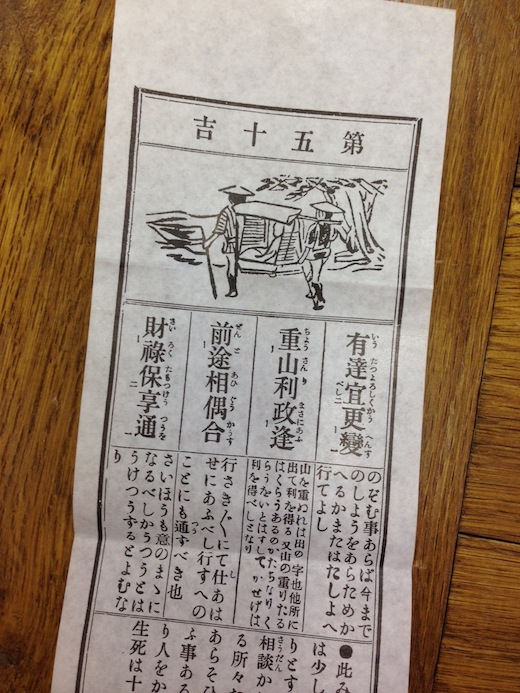 第五十吉
有達宜更變
重山利政逢
前途相偶合
財祿保享通
のぞむ事あらば今まで
のしようをあらためか
へるかまたはたしよへ
行てよし
山を重ぬれは出の字也他所に
出て利を得る又山の重りたる
はくらうあるのかたちなりく
らうをいとはずしてかせげは
利を得べしとなり
行さき〴〵にて仕あは
せにあふべし行すへの
ことにも通すべき也
さいほうも意のまゝに
なるべしかうつうとは
うけつうするとよむな
り
●此み
は少し
りとす
相談か
る所々
あらそひ
ふ事ある
り人をか
生死は十